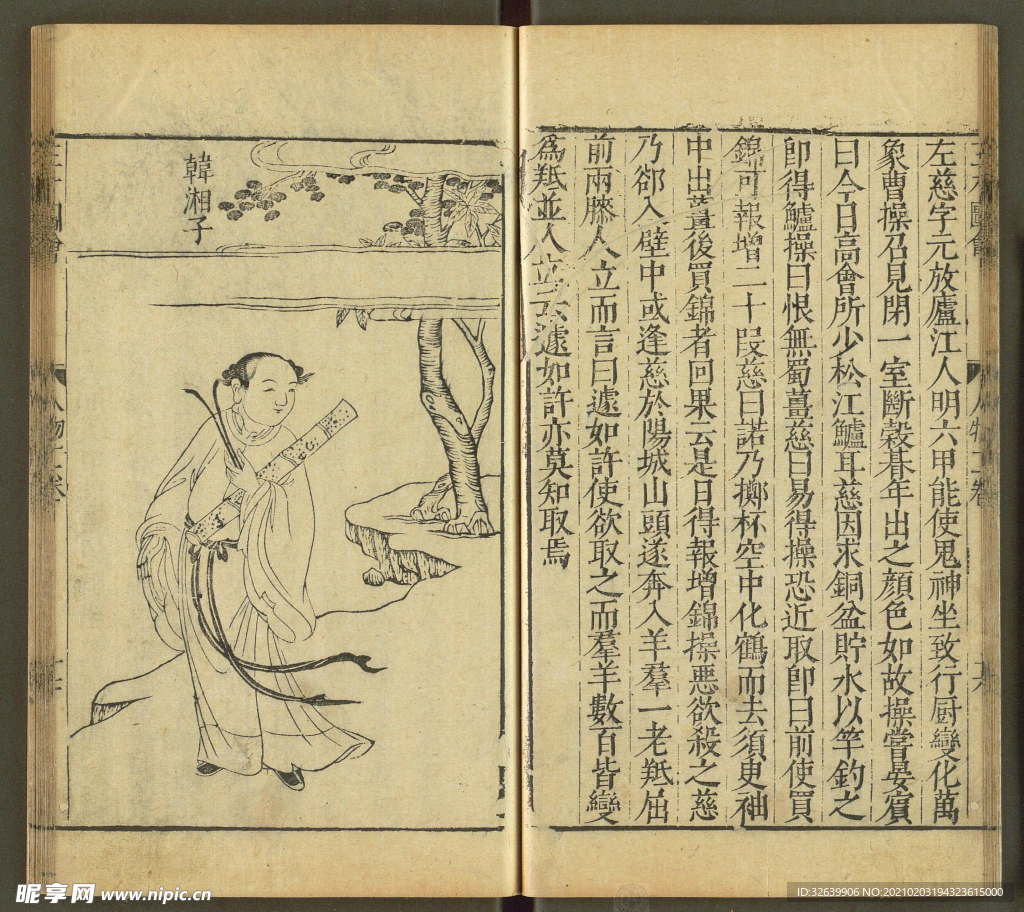 左慈字元放廬江人明六甲能使鬼神坐致行厨變化萬
象曹操召見閉一室斷穀朞年出之顔色如故操嘗晏賔
曰今日高會所少松江鱸耳慈因求銅盆貯水以竿釣之
卽得鱸操曰恨無蜀薑慈曰易得操恐近取卽曰前使買
錦可報增二十叚慈曰諾乃擲杯空中化鶴而去須臾袖
中出薑後買錦者回果云是日得報增錦操惡欲殺之慈
乃郤入壁中或逢慈於陽城山頭遂奔入羊羣一老羝屈
前兩膝人立而言曰遽如許使欲取之而羣羊數百皆變
爲羝並人立云遽如許亦莫知取焉
韓湘子
昵享网 www.nipic.cn
ID:32639906 NO:20210203194323615000